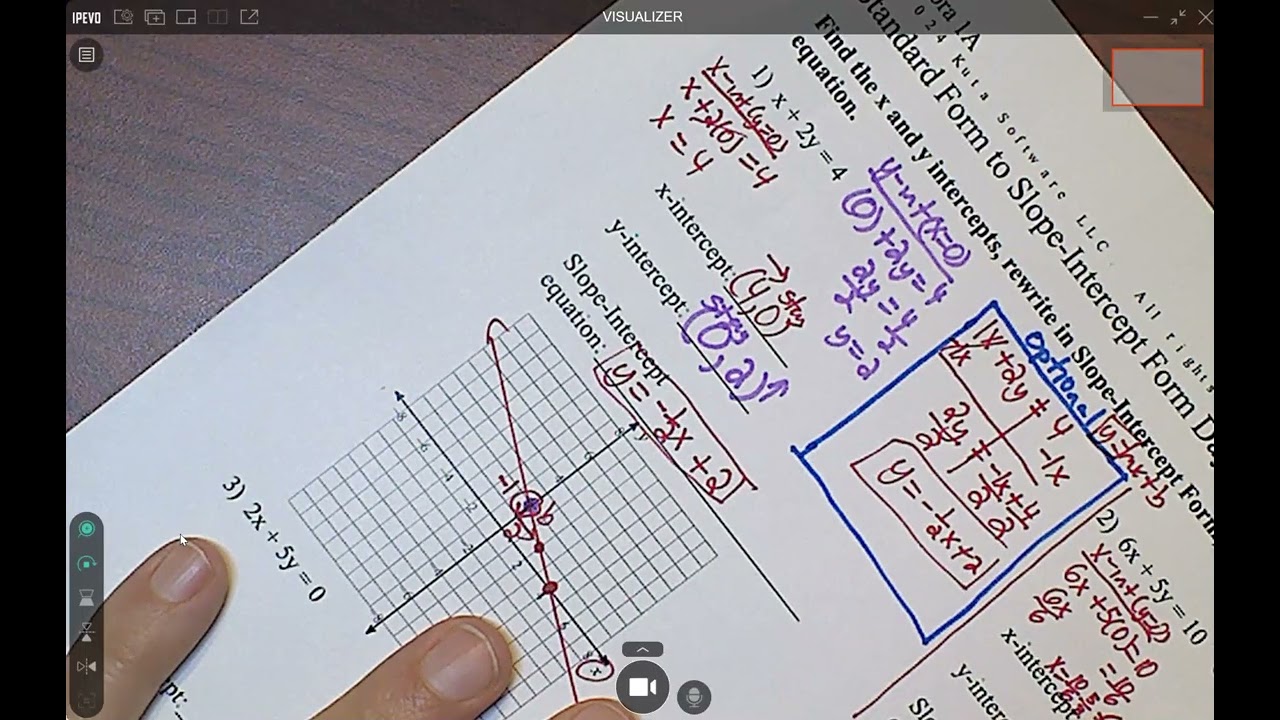 IPEVO
VISUALIZER
ora 1A
0 2 4 Kuta Software LLC. All rights
Standard Form to Slope-Intercept Form Da
Find the x and y intercepts, rewrite in Slope-Intercept Form
equation.
1) x + 2y = 4
x-int (y=0)
x + 2(0) = 4
x = 4
y-int (x=0)
(0) + 2y = 4
2y = 4
2 2
y = 2
x-intercept: (4,0)
stay
y-intercept: (0,2)
stay
Slope-Intercept
equation: y = -1/2x + 2
optional
y=mx+b
1x + 2y = 4
-1x -1x
2y = -1x + 4
2 2 2
y = -1/2x + 2
2) 6x + 5y = 10
x-int (y=0)
6x + 5(0) = 10
6x = 10
6 6
x-intercept
y-intercep
Slo
3) 2x + 5y = 0
pt:
y
x
b